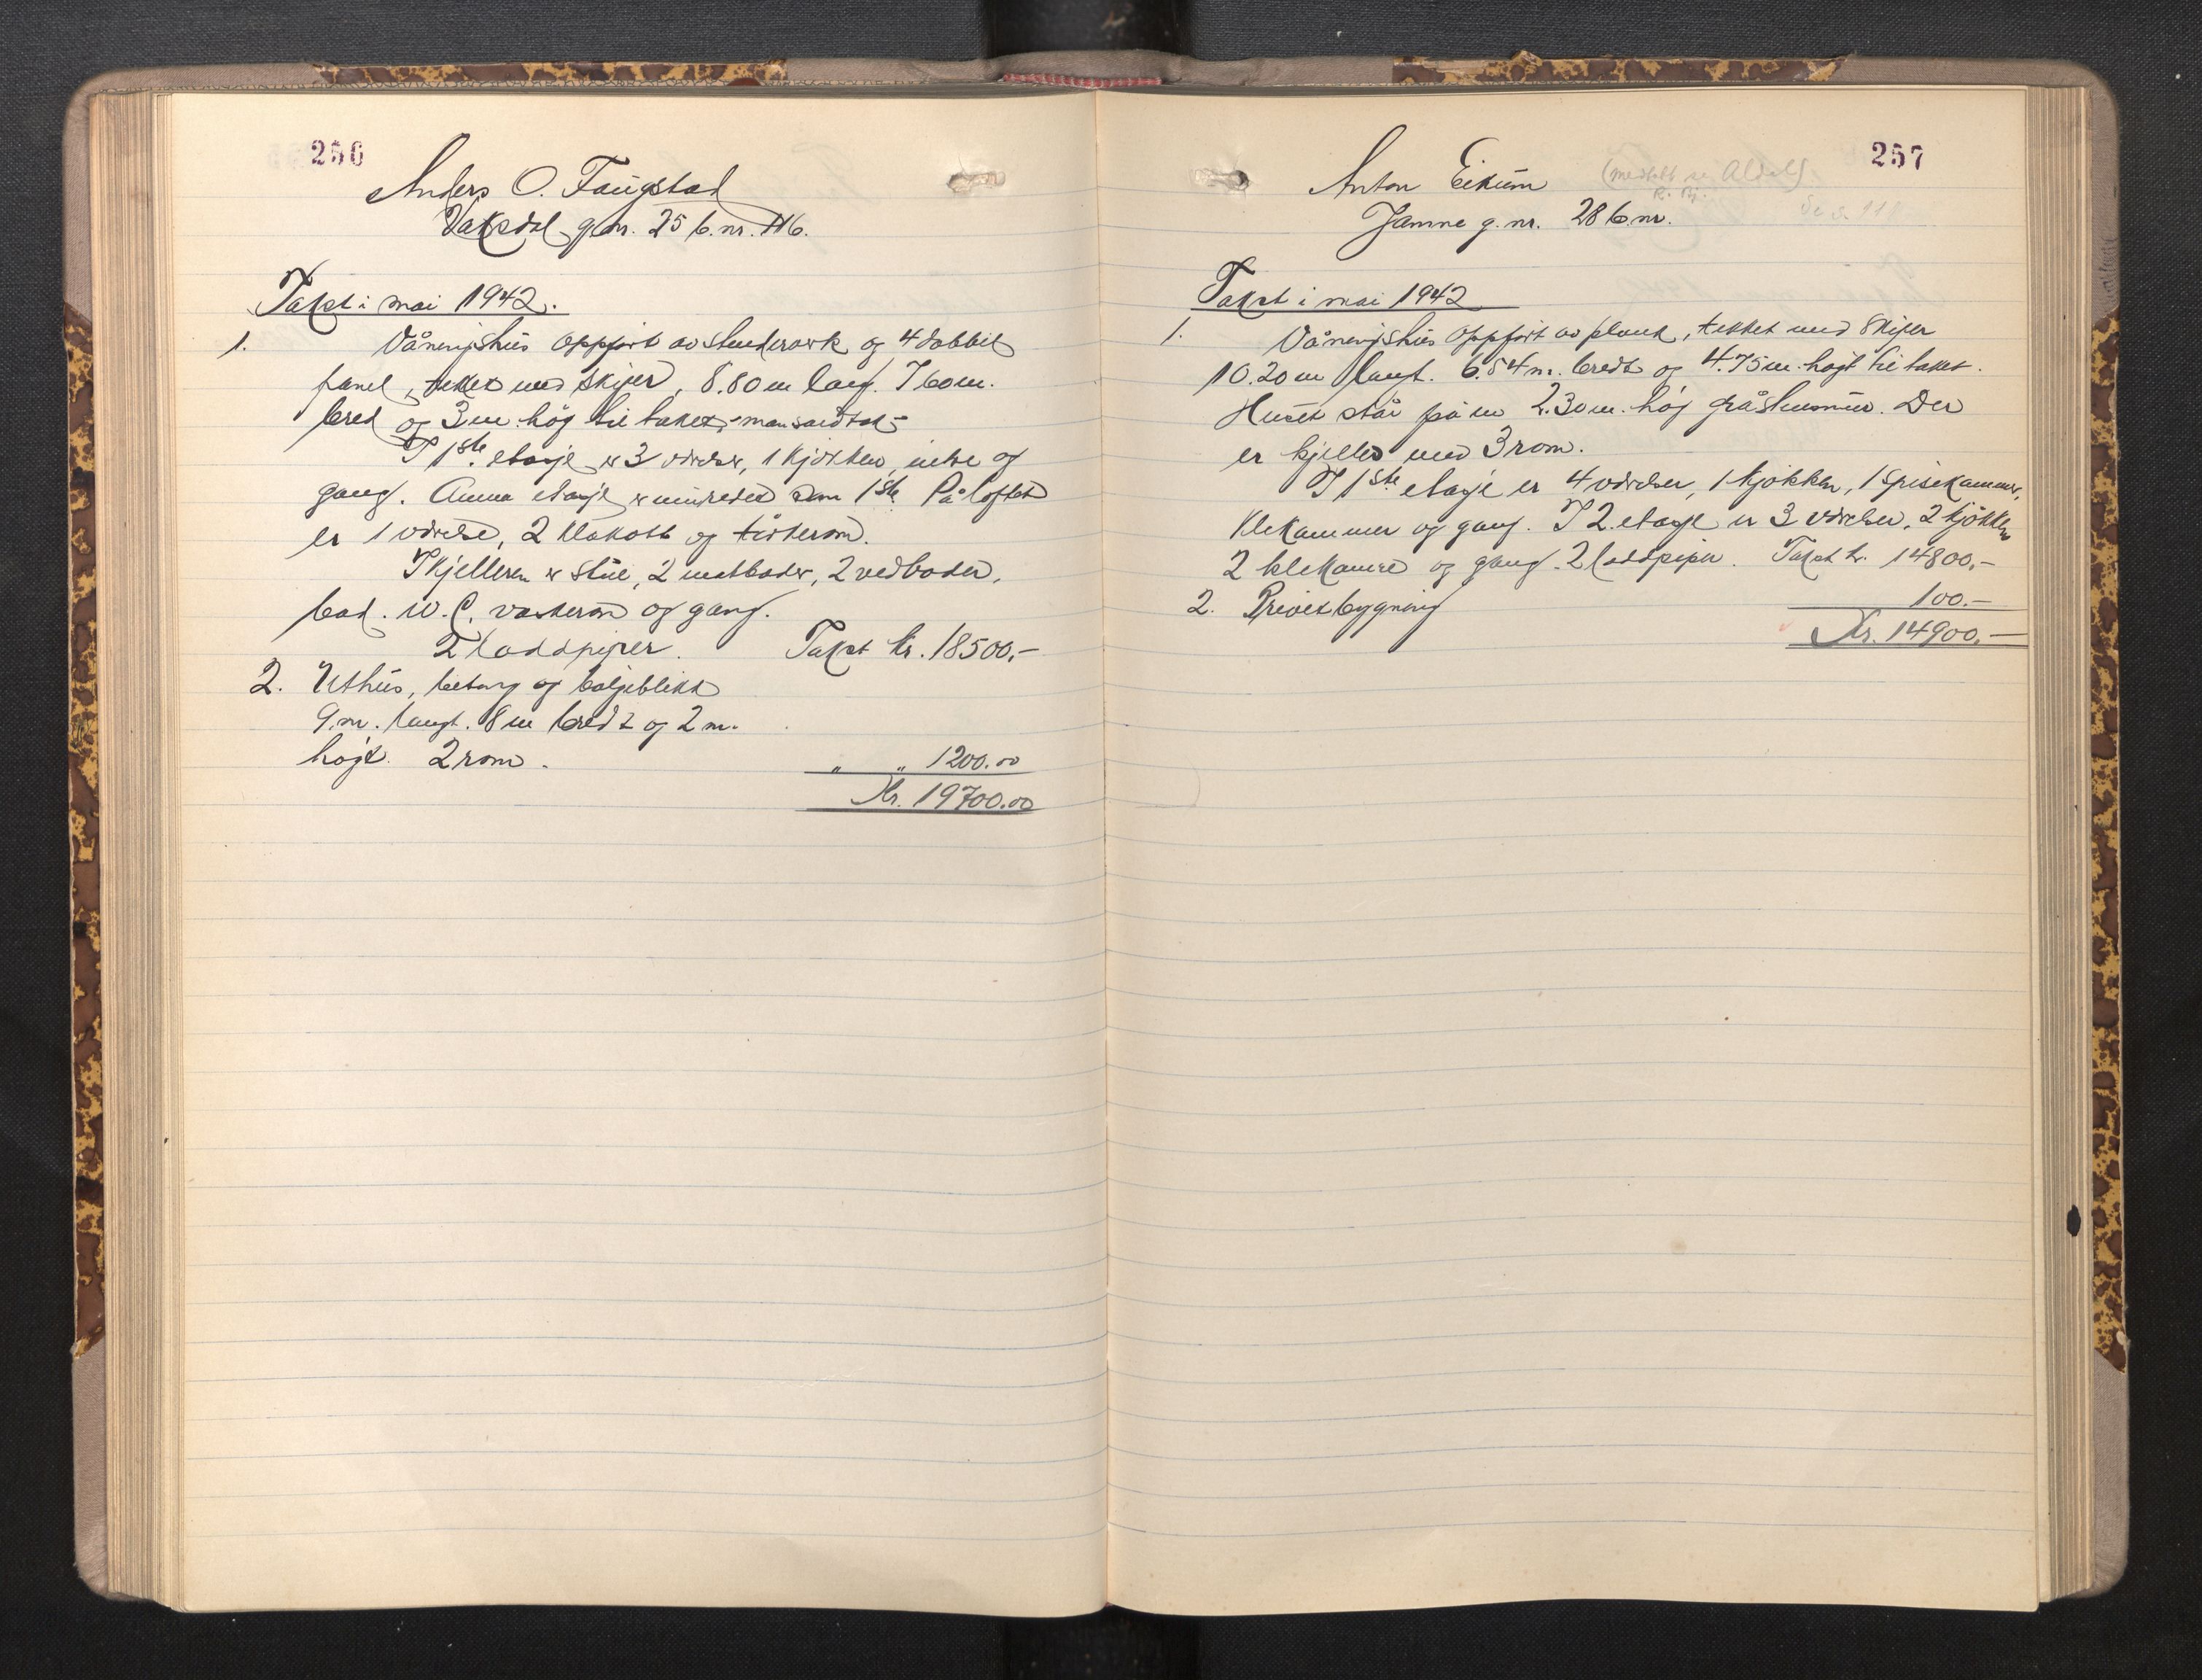 256
Anders O. Faugstad
Vaksdal g.nr. 25 b.nr. 116.
Takst i mai 1942.
1. Våningshus oppført av stenderverk og 4 dobbelt
panel, tekket med skifer, 8.80 m lang. 7 60 m.
bred og 3 m. høg til taket, - mansardtak -
I 1ste. etasje er 3 værelser, 1 kjøkken, entre og
gang. Annen etasje er innredet som 1ste. På loftet
er 1 værelse, 2 klekott og tørkerom.
I kjelleren er stue, 2 matboder, 2 vedboder,
bad. W.C. vaskerom og gang.
2 loddpiper. Takst kr. 18500,-
2. Uthus, betong og bølgeblikk
9. m. langt. 8 m bredt og 2 m.
høgt. 2 rom. " " 1200.00
Kr. 19700.00
257
Anton Eikum (medtatt Aldal)
Jamne g. nr. 28 b.nr.
Takst i mai 1942
1. Våningshus oppført av plank, tekket med skifer
10.20 m langt. 6.54 m. bredt og 4.75 m. høgt til taket.
Huset står på en 2.30 m. høg gråstensmur. Der
er kjeller med 3 rom.
I 1ste etasje er 4 værelser, 1 kjøkken, 1 spisekammer,
klekammer og gang. I 2. etasje er 3 værelser, 2 kjøkken
2 klekamre og gang. 2 loddpiper. Takst kr. 14800,-
2. Privetbygning 100.-
Kr. 14900,-